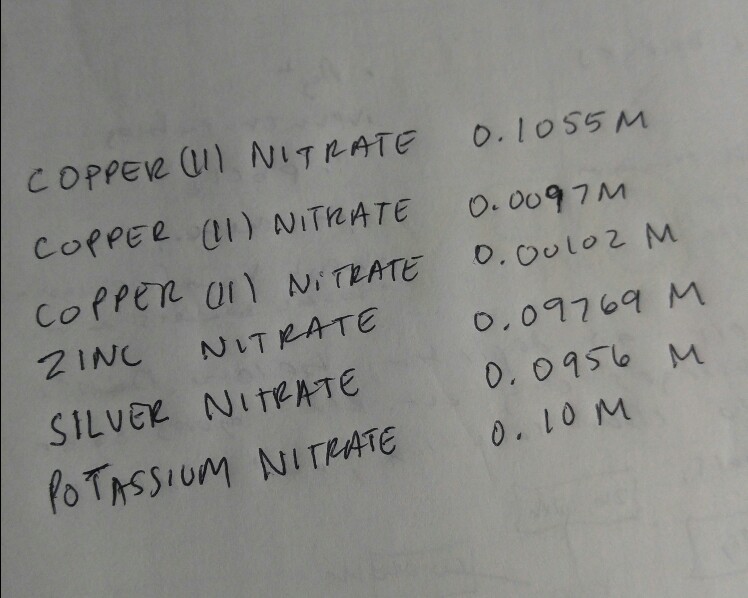 COPPER (II) NITRATE 0.1055 M
COPPER (II) NITRATE 0.0097 M
COPPER (II) NITRATE 0.00102 M
ZINC NITRATE 0.09769 M
SILVER NITRATE 0.0956 M
POTASSIUM NITRATE 0.10 M